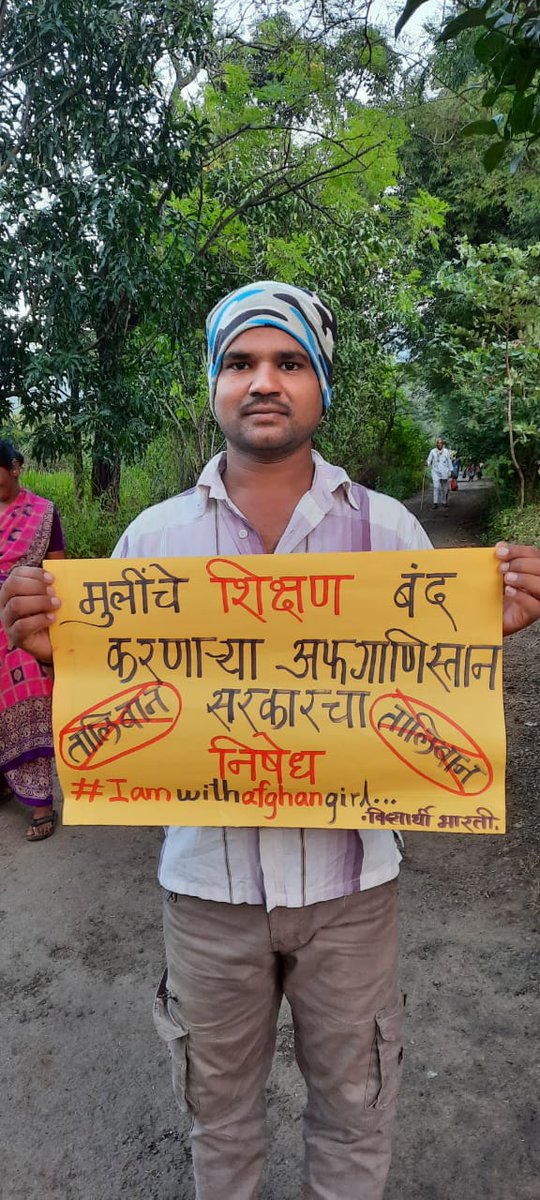 मुलींचे शिक्षण बंद
करणाऱ्या अफगाणिस्तान
तालिबान सरकारचा तालिबान
निषेध
#Iamwithafghangirl...
.विद्यार्थी भारती.